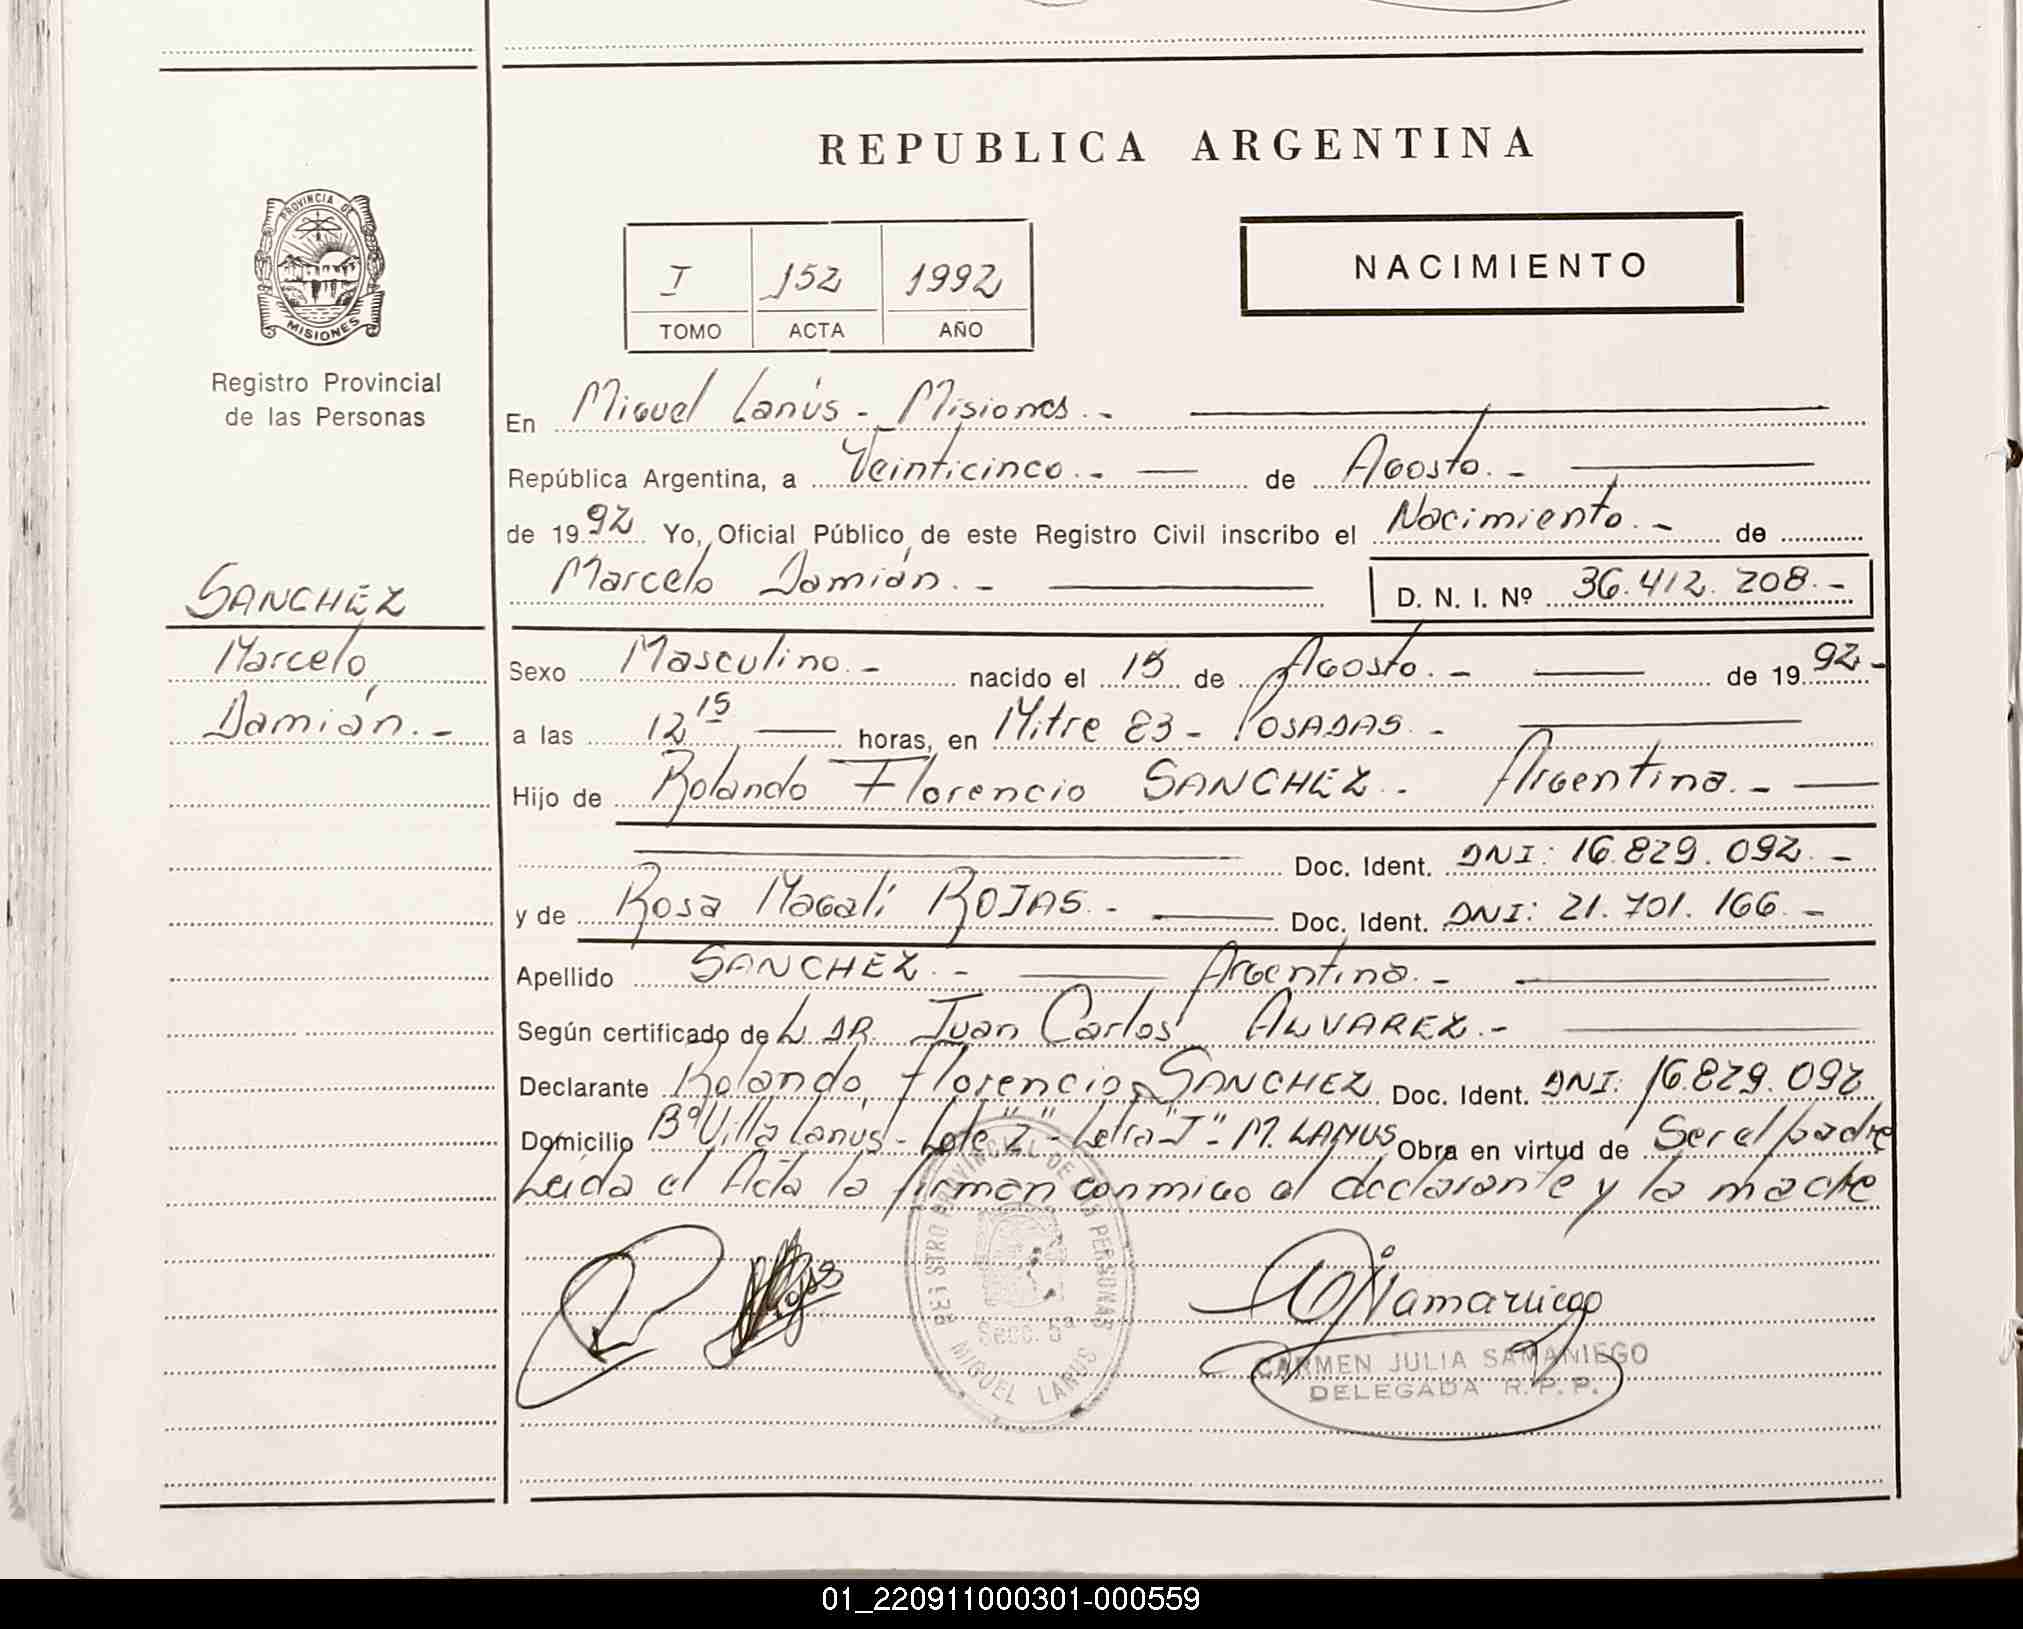 REPUBLICA ARGENTINA
PROVINCIA DE
MISIONES
Registro Provincial
de las Personas
I 152 1992
TOMO ACTA AÑO
NACIMIENTO
En Miguel Lanús - Misiones.-
República Argentina, a Veinticinco.- de Agosto.-
de 1992 Yo, Oficial Público de este Registro Civil inscribo el Nacimiento.- de
Marcelo Damián.- D. N. I. Nº 36.412.208.-
SANCHEZ
Marcelo
Damián.-
Sexo Masculino.- nacido el 15 de Agosto.- de 1992-
a las 12 15 horas, en Mitre 83 - POSADAS.-
Hijo de Rolando Florencio SANCHEZ.- Argentina.-
Doc. Ident. DNI: 16.829.092.-
y de Rosa Magalí ROJAS.- Doc. Ident. DNI: 21.701.166.-
Apellido SANCHEZ.- Argentina.-
Según certificado de L DR. Juan Carlos ALVAREZ.-
Declarante Rolando Florencio SANCHEZ Doc. Ident. DNI: 16.829.092
Domicilio Bº Villa Lanús - Lote "2" - Letra "J" - M. LANUS Obra en virtud de Ser el padre
Leida el Acta la firman conmigo el declarante y la madre
REGISTRO PROVINCIAL DE LAS PERSONAS
Secc. 5ª
MIGUEL LANUS
CARMEN JULIA SAMANIEGO
DELEGADA R. P. P.
01_220911000301-000559